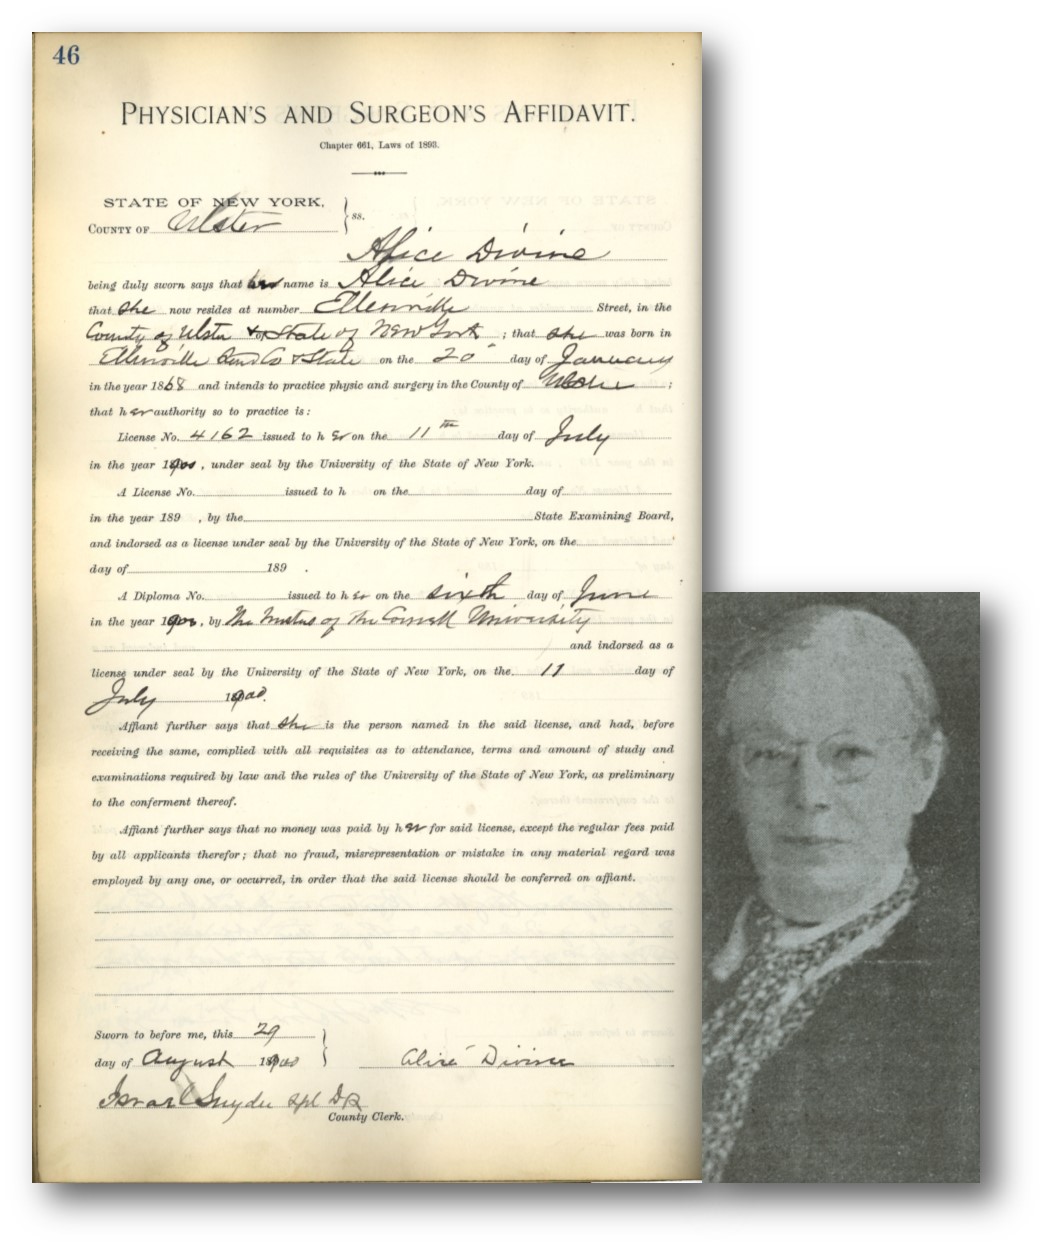 46
PHYSICIAN'S AND SURGEON'S AFFIDAVIT.
Chapter 661, Laws of 1893.
STATE OF NEW YORK, ss.
COUNTY OF Ulster
Alice Divine
being duly sworn says that her name is Alice Divine
that she now resides at number Ellenville Street, in the
County of Ulster & State of New York ; that she was born in
Ellenville Co & State on the 20 day of January
in the year 1868 and intends to practice physic and surgery in the County of Ulster ;
that her authority so to practice is:
License No. 4162 issued to her on the 11th day of July
in the year 1900, under seal by the University of the State of New York.
A License No. issued to h on the day of
in the year 189 , by the State Examining Board,
and indorsed as a license under seal by the University of the State of New York, on the
day of 189 .
A Diploma No. issued to her on the sixth day of June
in the year 1900, by The Trustees of the Cornell University
and indorsed as a
license under seal by the University of the State of New York, on the 11 day of
July 1900.
Affiant further says that she is the person named in the said license, and had, before
receiving the same, complied with all requisites as to attendance, terms and amount of study and
examinations required by law and the rules of the University of the State of New York, as preliminary
to the conferment thereof.
Affiant further says that no money was paid by her for said license, except the regular fees paid
by all applicants therefor; that no fraud, misrepresentation or mistake in any material regard was
employed by any one, or occurred, in order that the said license should be conferred on affiant.
Sworn to before me, this 29
day of August 1900 Alice Divine
Snyder Spl
County Clerk.